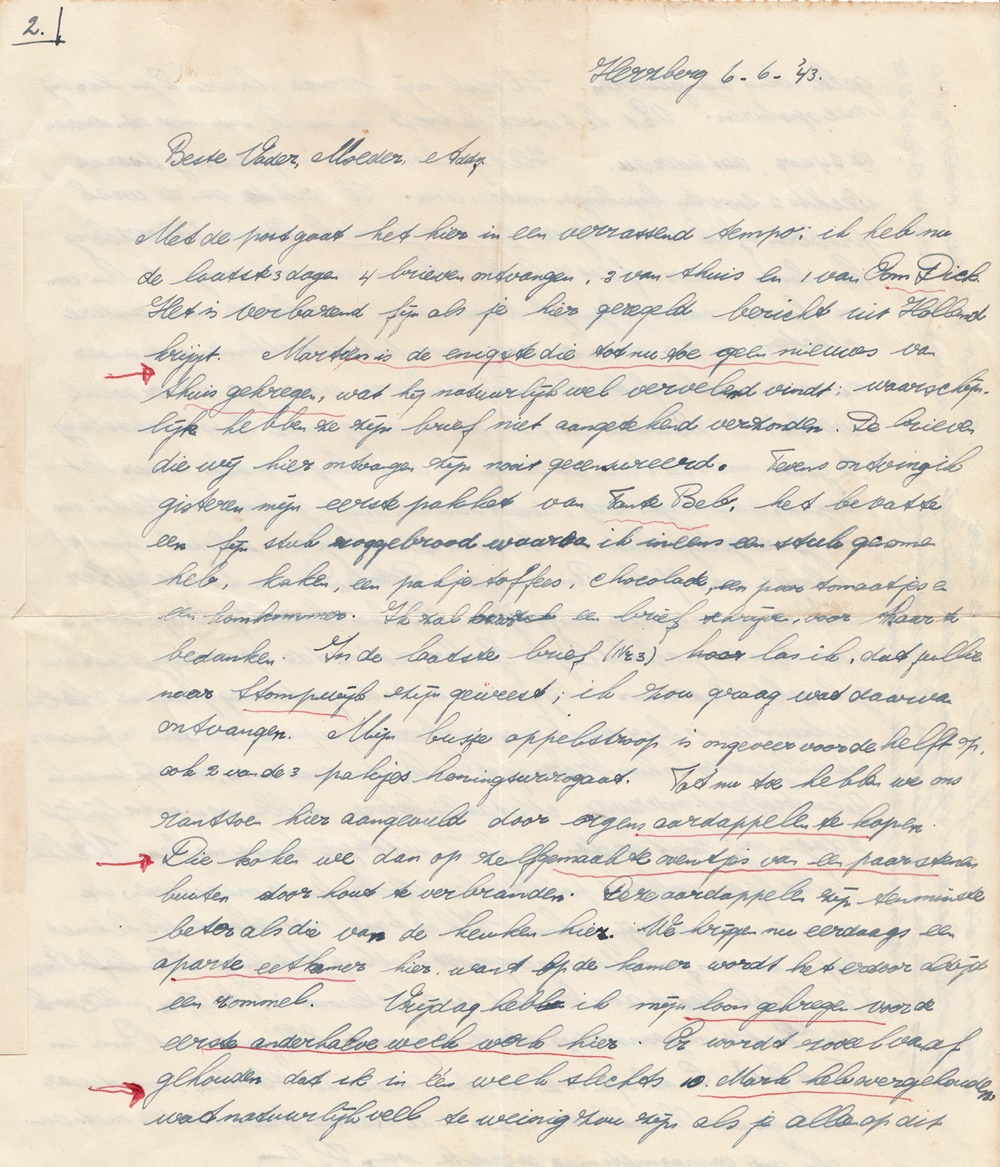 2.
Herzberg 6-6-'43.
Beste Vader, Moeder, Addy
Met de post gaat het hier in een verrassend tempo; ik heb nu
de laatste 3 dagen 4 brieven ontvangen, 3 van thuis en 1 van Oom Dick.
Het is verbazend fijn als je hier geregeld bericht uit Holland
krijgt. Martien is de enigste die tot nu toe geen nieuws van
thuis gekregen, wat hij natuurlijk wel vervelend vindt; waarschijn-
lijk hebben ze zijn brief niet aangetekend verzonden. De brieven
die wij hier ontvangen zijn nooit gecensureerd. Tevens ontving ik
gisteren mijn eerste pakket van Tante Beb, het bevatte
een fijn stuk roggebrood waarvan ik ineens een stuk genomen
heb, kaken, een pakje toffees, chocolade, een paar tomaatjes en
een komkommer. Ik zal een brief schrijven, voor haar te
bedanken. In de laatste brief (No 3) las ik, dat jullie
naar Stompwijk zijn geweest; ik zou graag wat daarvan
ontvangen. Mijn busje appelstroop is ongeveer voor de helft op,
ook 2 van de 3 pakjes honingsurrogaat. Tot nu toe hebben we ons
rantsoen hier aangevuld door ergens aardappelen te kopen.
Die koken we dan op zelfgemaakte oventjes van een paar stenen
buiten door hout te verbranden. Deze aardappelen zijn tenminste
beter als die van de keuken hier. We krijgen nu eerdaags een
aparte eetkamer hier, want op de kamer wordt het erdoor altijd
een rommel. Vrijdag heb ik mijn loon gekregen voor de
eerste anderhalve week werk hier. Er wordt zoveel van af
gehouden dat ik in één week slechts 10. Mark heb overgehouden,
wat natuurlijk veel te weinig zou zijn als je alles op dit